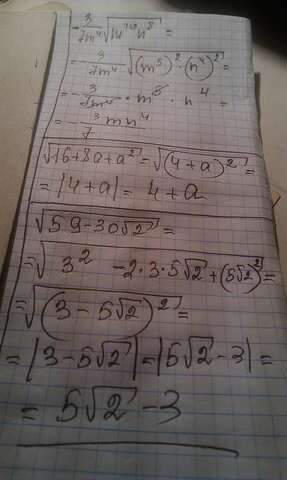 -3/7m⁴ √m¹⁰n⁸ =
= -3/7m⁴ √(m⁵)²·(n⁴)² =
= -3/7m⁴ · m⁵ · n⁴ =
= -3/7 mn⁴
√16+8a+a² = √(4+a)² =
= |4+a| = 4+a
√59-30√2 =
= √3² -2·3·5√2+(5√2)² =
= √(3-5√2)² =
= |3-5√2| = |5√2-3| =
= 5√2-3